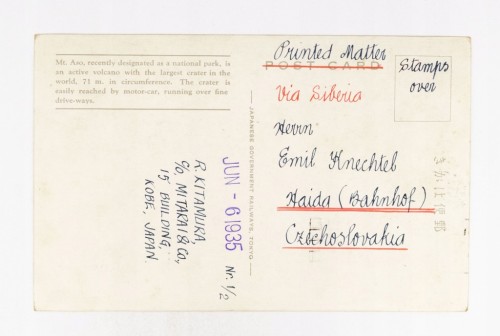 Mt. Aso, recently designated as a national park, is
an active volcano with the largest crater in the
world, 71 m. in circumference. The crater is
easily reached by motor-car, running over fine
drive-ways.
Printed Matter
POST CARD
Via Siberia
Stamps
over
Herrn
Emil Knechtel
Haida (Bahnhof)
Czechoslovakia
JAPANESE GOVERNMENT RAILWAYS, TOKYO
JUN - 6 1935
Nr. 1/2
R. KITAMURA
c/o, MITARAI & Co,
15 BUILDING.
KOBE, JAPAN.